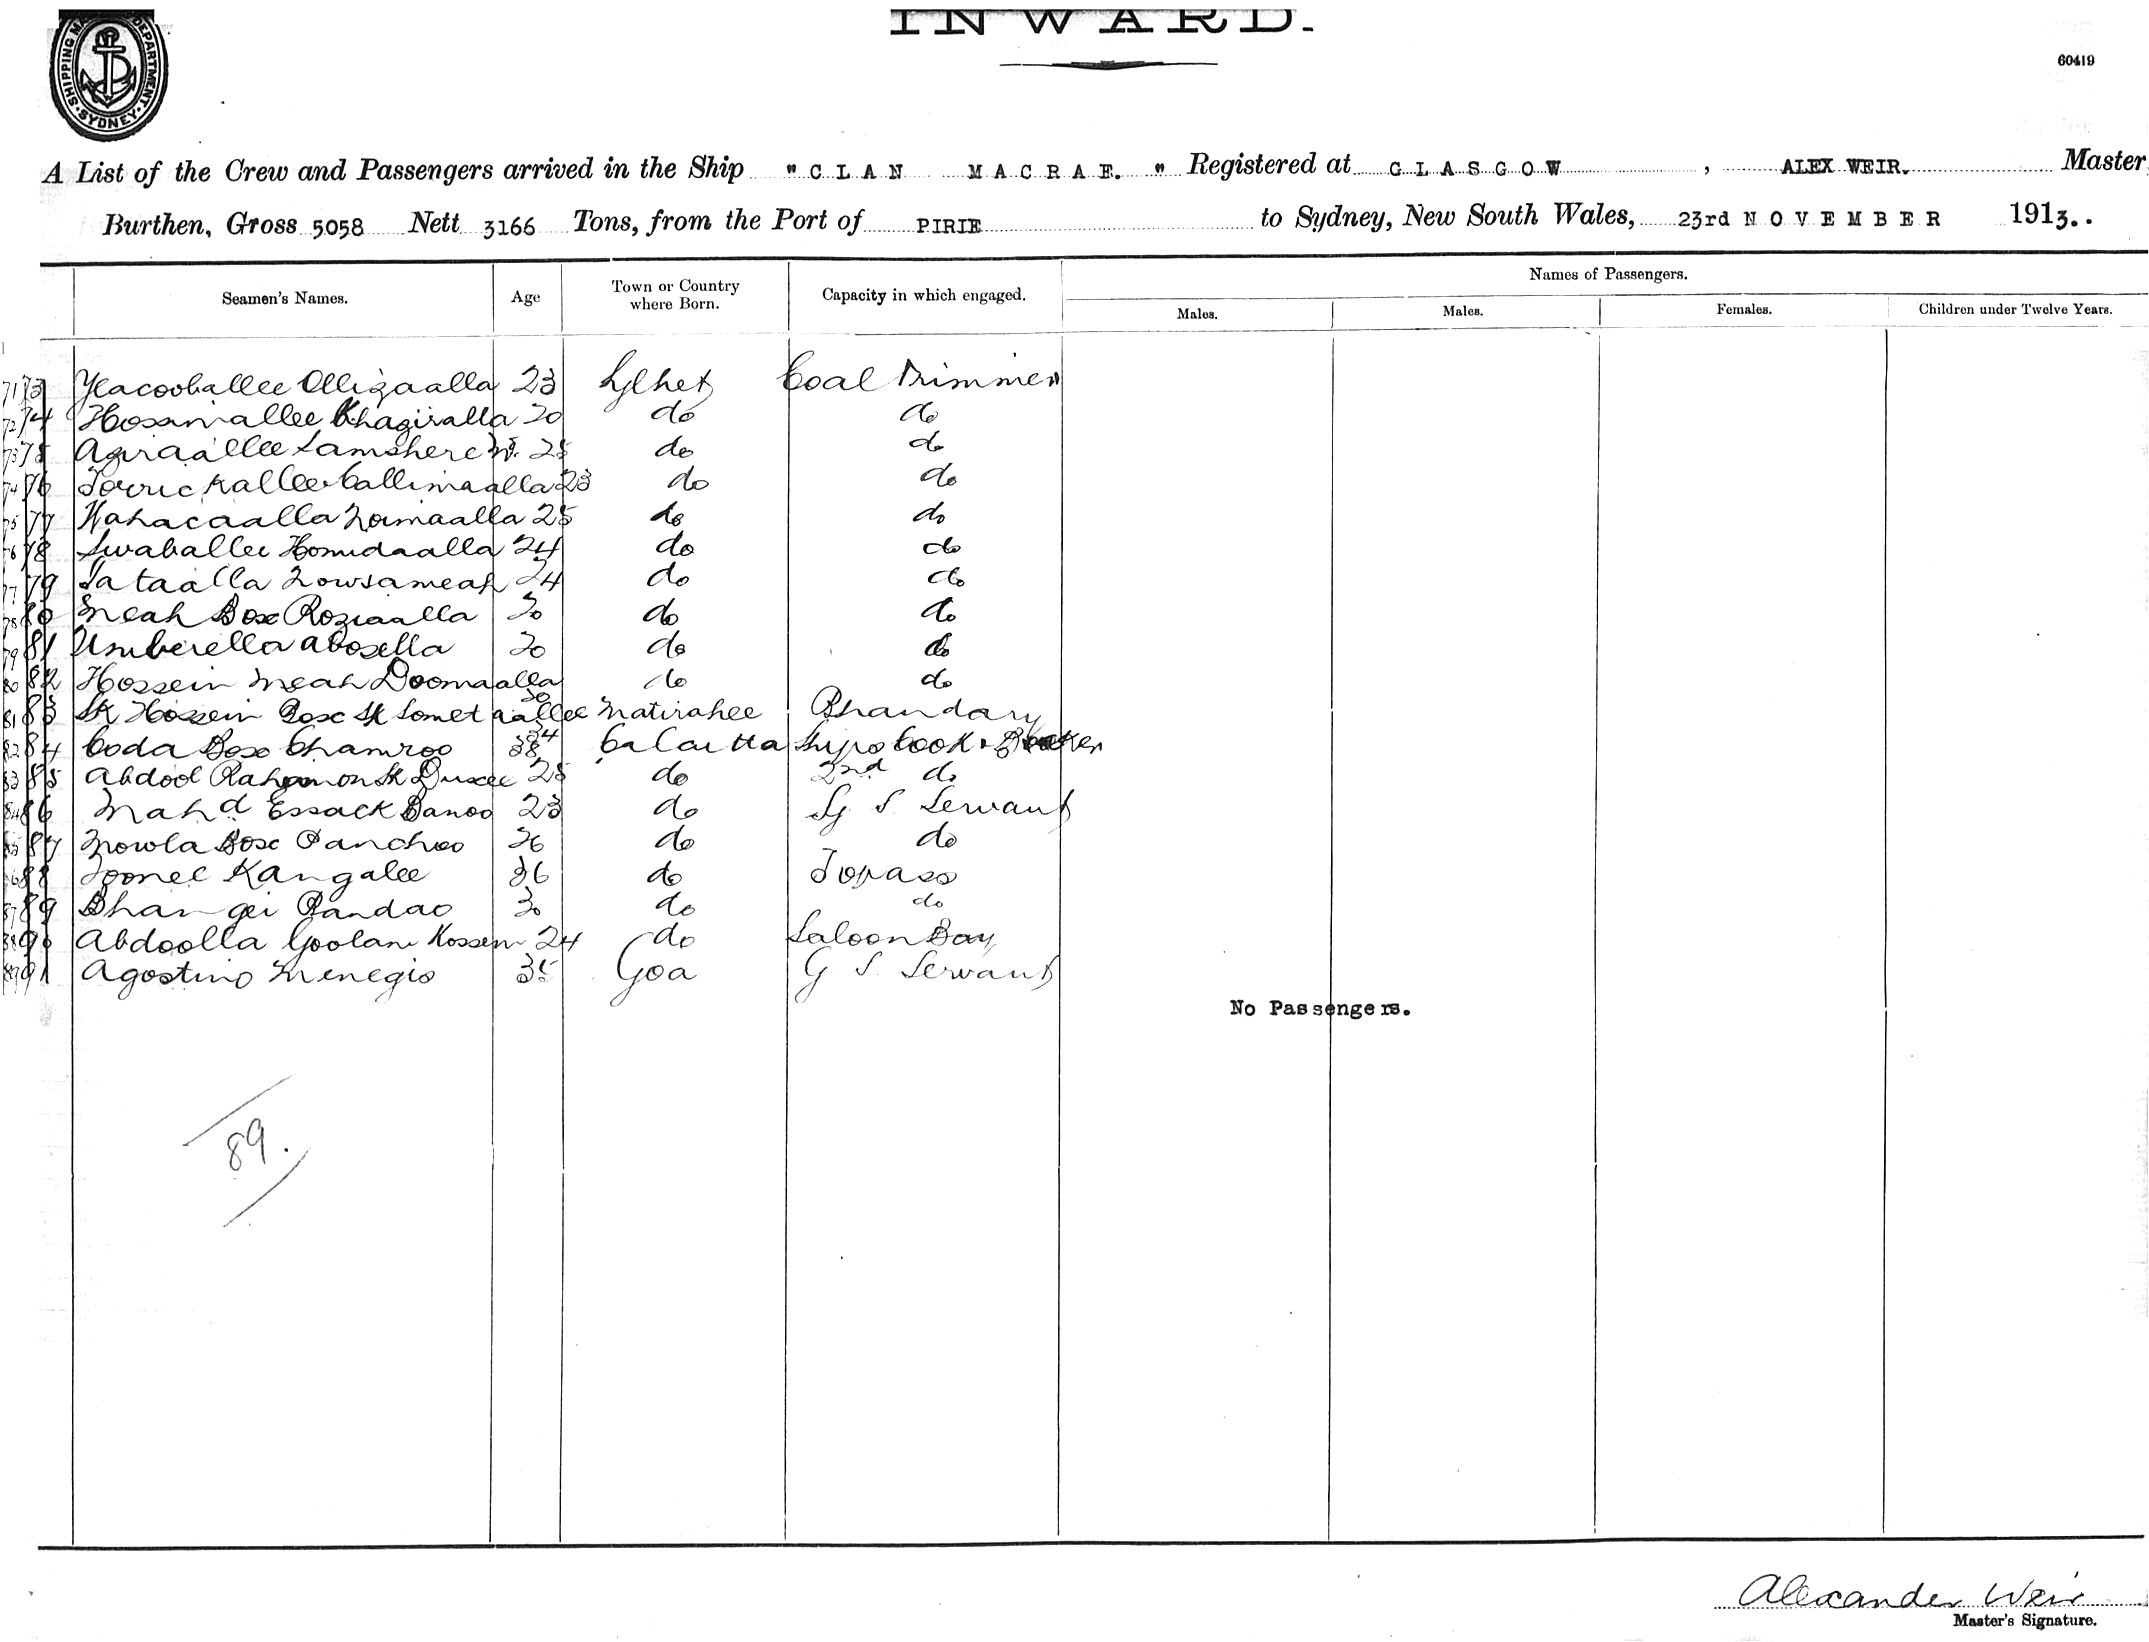 INWARD.
SHIPPING MA DEPARTMENT SYDNEY
60419
A List of the Crew and Passengers arrived in the Ship "CLAN MACRAE." Registered at GLASGOW, ALEX WEIR. Master
Burthen, Gross 5058 Nett 3166 Tons, from the Port of PIRIE to Sydney, New South Wales, 23rd NOVEMBER 1913..
Names of Passengers.
Seamen's Names. Age Town or Country where Born. Capacity in which engaged. Males. Males. Females. Children under Twelve Years.
71 73 Yeacooballee Olligaalla 23 Sylhet Coal Trimmer
72 74 Hossinallee Khagiralla 20 do do
73 75 28 do do
74 76 23 do do
75 77 25 do do
76 78 Swaballee Homidaalla 24 do do
77 79 Sataalla Nowsameah 24 do do
78 80 Meah Box Roziaalla 20 do do
79 81 Umberella Aboxella 20 do do
80 82 Hossein Meah Doomaalla 20 do do
81 83 Sk Hossein Boxe Sk Somet aallee 34 Matirahee Bhandary
82 84 Coda Box Chamroo 38 Calcutta Ships Cook & Baker
83 85 Abdool Rahamon Sk 28 do 2nd do
84 86 Mahd Essack Banoo 23 do G S Servant
85 87 Mowla Box Panchoo 26 do do
86 88 Toonee Kangalee 36 do Topass
87 89 Bhangi Randao 30 do do
88 90 Abdoolla Goolam Hossem 24 do Saloon Boy
89 91 Agostino Menegis 35 Goa G S Servant
No Passengers.
89.
Alexander Weir
Master's Signature.